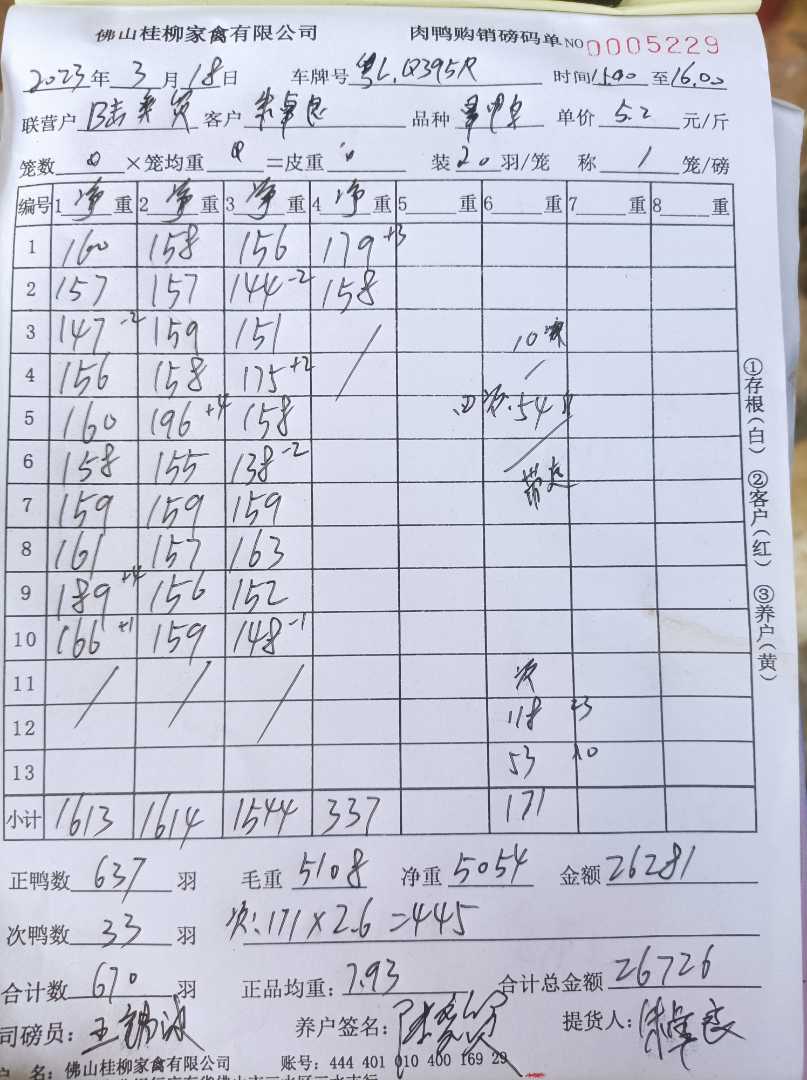 佛山桂柳家禽有限公司 肉鸭购销磅码单 NO 0005229
2023年 3 月 18日 车牌号 粤L.Q395R 时间15:00 至16.00
联营户 客户 朱卓良 品种 单价 5.2 元/斤
笼数 0 ×笼均重 0 =皮重 0 装 20 羽/笼 称 1 笼/磅
编号 1 净 重 2 净 重 3 净 重 4 净 重 5 重 6 重 7 重 8 重
1 160 158 156 179+3
2 157 157 144-2 158
3 147-2 159 151 /
4 156 158 175+2
5 160 196+4 158 次.54
6 158 155 138-2
7 159 159 159
8 161 157 163
9 189+4 156 152
10 166+1 159 148-1
11 / / / 次
12 118 23
13 53 10
小计 1613 1614 1544 337 171
正鸭数 637 羽 毛重 5108 净重 5054 金额 26281
次鸭数 33 羽 次:171×2.6=445
合计数 670 羽 正品均重: 7.93 合计总金额 26726
司磅员: 养户签名: 提货人: 朱卓良
户 名: 佛山桂柳家禽有限公司 账号: 444 401 010 400 169 29
①存根(白) ②客户(红) ③养户(黄)